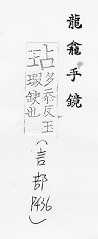 龍龕手鏡
多忝反玉
瑕缺也
(言部
P436)